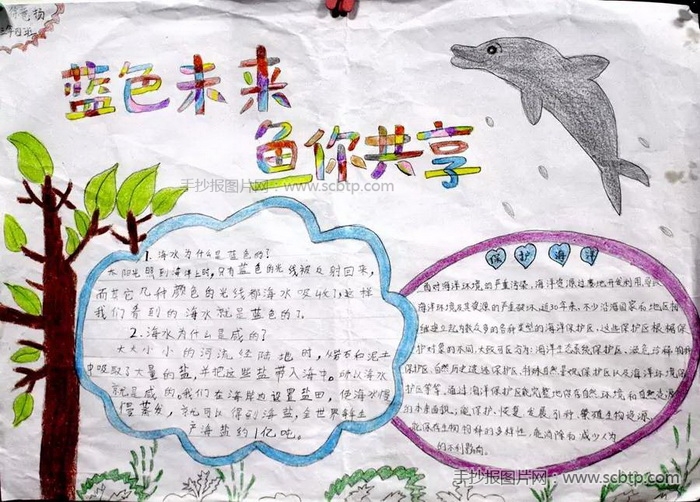 蓝色未来
鱼你共享
手抄报图片网：www.scbtp.com
1. 海水为什么是蓝色的?
太阳光照到海洋上时,只有蓝色的光线被反射回来,
而其它几种颜色的光线都海水吸收了,这样
我们看到的海水就是蓝色的了.
2. 海水为什么是咸的?
大大小小的河流经陆地时,
中吸取了大量的盐,并把这些盐带入海中.所以海水
就是咸的.我们在海岸边设置盐田,使海水慢
慢蒸发,就可以得到海盐,全世界每年
产海盐约1亿吨.
保护海洋
面对海洋环境的严重污染,海洋资源过度地开发利用,
海洋环境及其资源的严重破坏,近30年来,不少沿海国家和地区
建立起为数众多的各种类型的海洋保护区,这些保护区根据保
护对象的不同,大致可区分为:海洋生态系统保护区、濒危珍稀物种
保护区、自然历史遗迹保护区、特殊自然景观保护区以及海洋环境保
护区等等.通过海洋保护区能完整地保存自然环境和自然资源
的本来面貌;能保护、恢复、发展、引种、繁殖生物资源,
能保存生物物种的多样性,能消除和减少人为
的不利影响.
手抄报图片网：www.scbtp.com